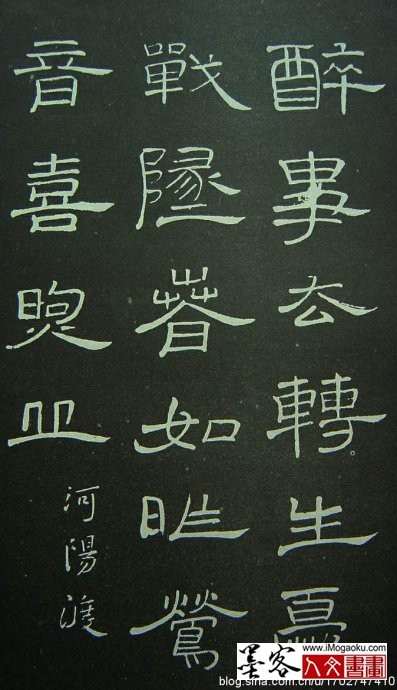 醉事去轉生
戰墜春如昨鶯
音喜
河陽渡
墨客
www.iMogaoku.com
人文書畫
blog.sina.com.cn/u/1702747410